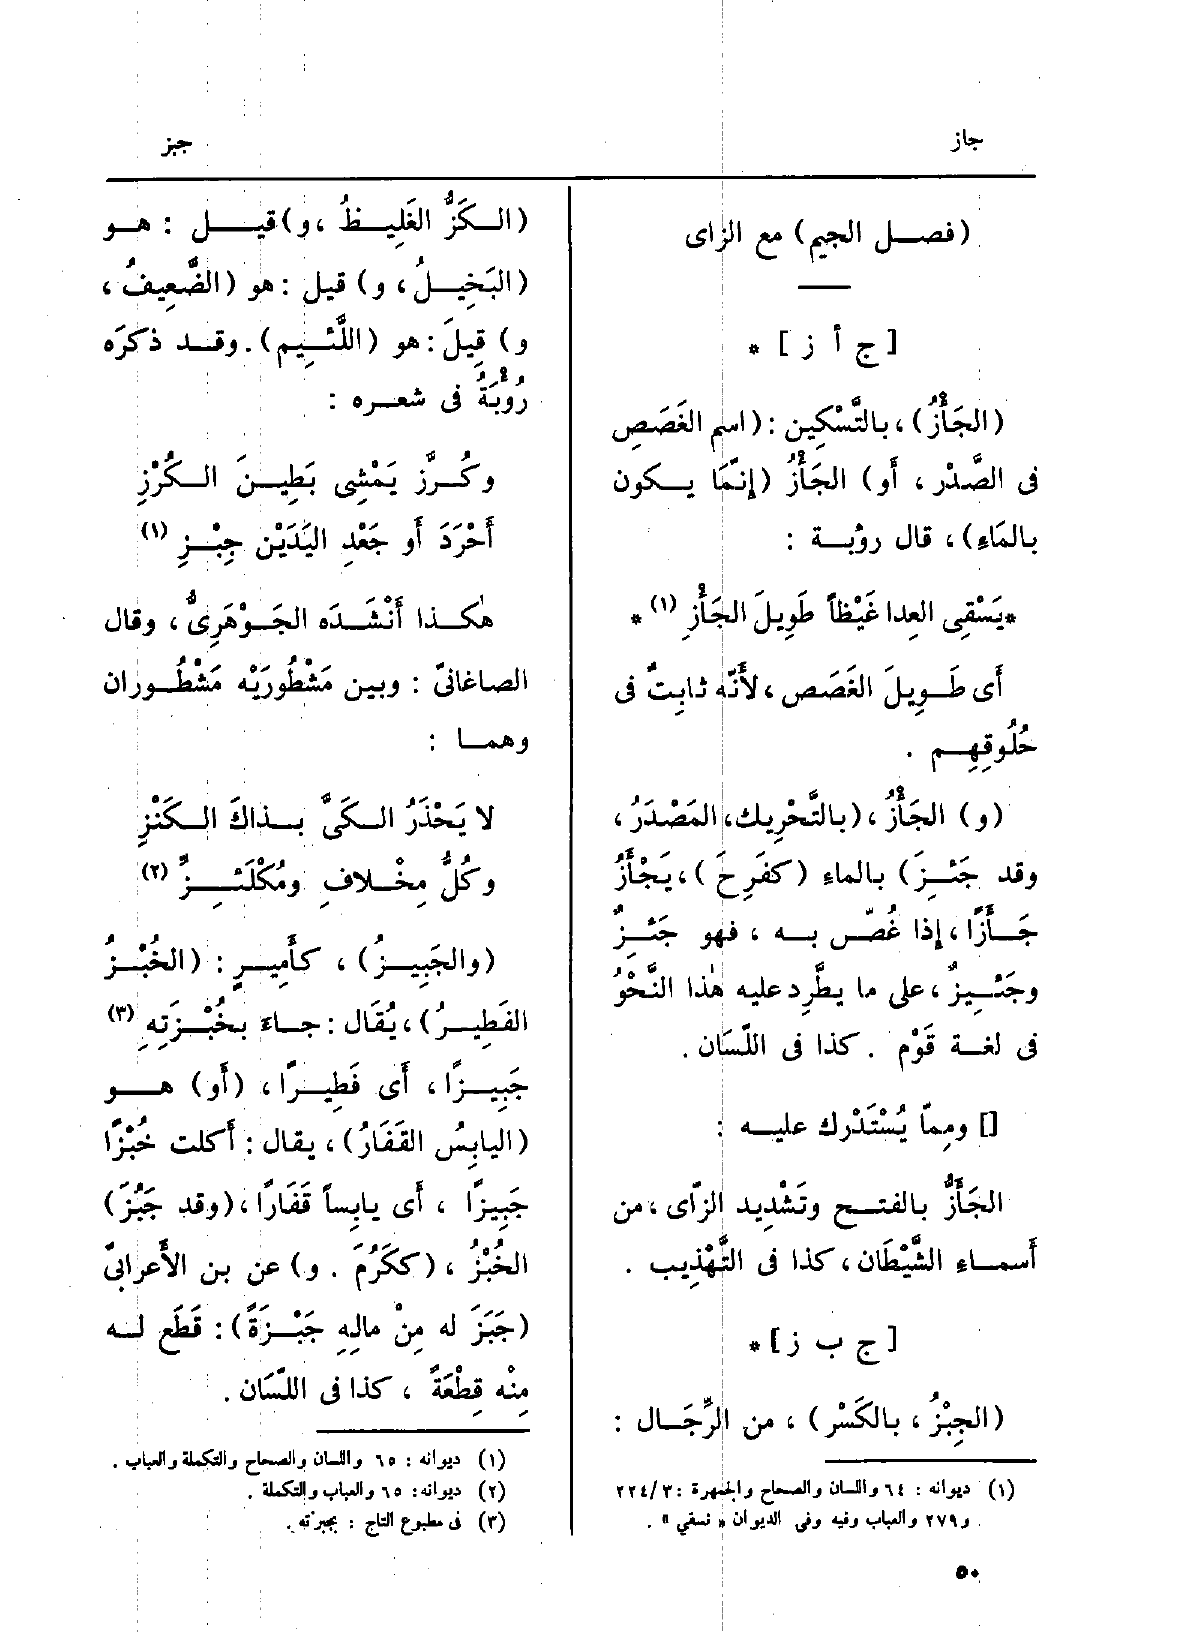 جاز
جبز
(فصل الجيم) مع الزاى
[ ج أ ز ] *
(الجَأْزُ)، بالتَّسْكِين : (اسم الغَصَصِ
فى الصَّدْر، أو) الجَأْزُ (إنَّمَا يكون
بالمَاءِ)، قال رؤبة :
*يَسْقِى العِدا غَيْظاً طَوِيلَ الجَأْزِ (١) *
أى طَوِيلَ الغَصَص، لأَنّه ثابِتٌ فى
حُلُوقِهِم .
(و) الجَأَزُ، (بالتَّحْرِيك، المَصْدَرُ،
وقد جَئِزَ) بالماءِ (كفَرِحَ)، يَجْأَزُ
جَأَزًا، إذا غُصّ به ، فهو جَئِزٌ
وجَئِيزٌ، على ما يطَّرِد عليه هٰذا النَّحْوُ
فى لغة قَوْم . كذا فى اللّسَان .
[] ومِمّا يُسْتَدْرك عليه :
الجَأَزُّ بالفتح وتَشْدِيد الزّاى، من
أسماءِ الشَّيْطَان، كذا فى التَّهْذِيب .
[ ج ب ز ]*
(الجِبْزُ ، بالكَسْر) ، من الرِّجَال :
(١) ديوانه : ٦٤ واللسان والصحاح والجمهرة : ٢٢٤/٣
و٢٧٩ والعباب وفيه وفى الديوان « نسقي » .
(الكَزُّ الغَلِيظُ، و) قيل : هو
(البَخِيلُ، و) قيل : هو (الضَّعِيفُ،
و) قِيلَ : هو (اللَّئِيم). وقد ذكرَه
رُؤْبَةُ فى شعره :
وكُرَّز يَمْشِى بَطِينَ الكُرْزِ
أَحْرَدَ أو جَعْدِ اليَدَيْن جِبْزِ (١)
هٰكذا أَنْشَدَه الجَوْهَرِىُّ، وقال
الصاغانىّ : وبين مَشْطُورَيْه مَشْطُوران
وهما :
لا يَحْذَرُ الكَىَّ بذاكَ الكَنْزِ
وكُلُّ مِخْلافٍ ومُكْلَئِزِّ (٢)
(والجَبِيزُ)، كأَمِيرٍ : (الخُبْزُ
الفَطِيرُ)، يُقَال : جاءَ بخُبْزَتِهِ (٣)
جَبِيزًا، أى فَطِيرًا، (أو) هو
(اليابِسُ القَفَارُ)، يقال : أكلت خُبْزًا
جَبِيزًا ، أى يابِساً قَفَارًا، (وقد جَبُزَ)
الخُبْزُ، (ككَرُمَ . و) عن بن الأعرابىّ
(جَبَزَ له مِنْ مالِهِ جَبْزَةً): قَطَع له
مِنْه قِطْعَةً ، كذا فى اللّسَان .
(١) ديوانه : ٦٥ واللسان والصحاح والتكملة والعباب .
(٢) ديوانه: ٦٥ والعباب والتكملة .
(٣) فى مطبوع التاج : بجبزته .
٥٠